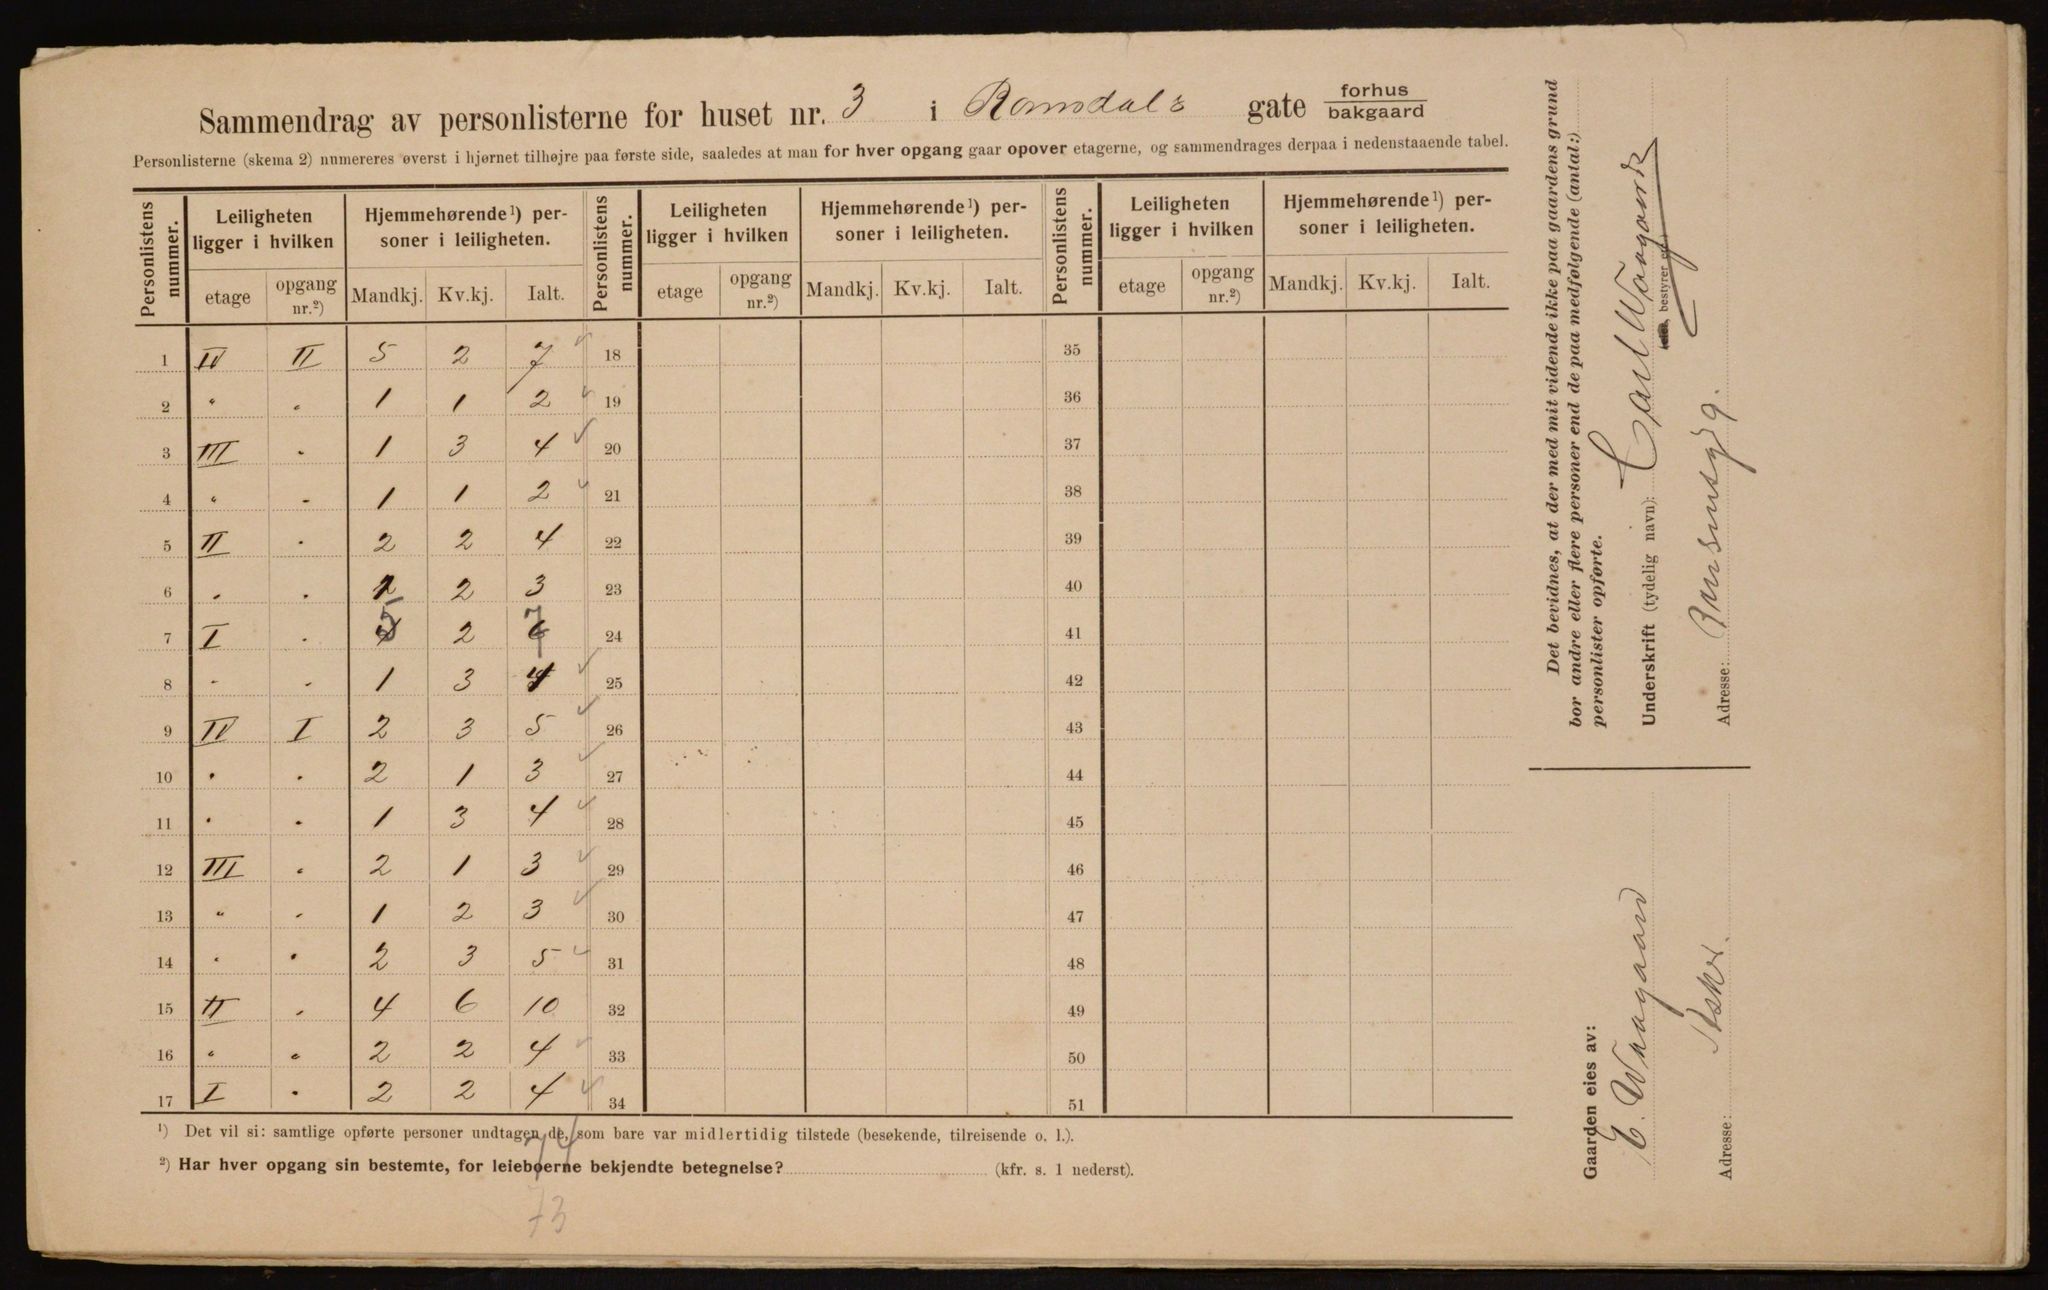 Sammendrag av personlisterne for huset nr. 3 i Romsdals gate forhus bakgaard
Personlisterne (skema 2) numereres øverst i hjørnet tilhøjre paa første side, saaledes at man for hver opgang gaar opover etagerne, og sammendrages derpaa i nedenstaaende tabel.
Personlistens nummer. Leiligheten ligger i hvilken Hjemmehørende¹) personer i leiligheten. Personlistens nummer. Leiligheten ligger i hvilken Hjemmehørende¹) personer i leiligheten. Personlistens nummer. Leiligheten ligger i hvilken Hjemmehørende¹) personer i leiligheten.
etage opgang nr.²) Mandkj. Kv.kj. Ialt. etage opgang nr.²) Mandkj. Kv.kj. Ialt. etage opgang nr.²) Mandkj. Kv.kj. Ialt.
1 IV II 5 2 7 18 35
2 " " 1 1 2 19 36
3 III " 1 3 4 20 37
4 " " 1 1 2 21 38
5 II " 2 2 4 22 39
6 " " 1 2 3 23 40
7 I " 5 2 7 24 41
8 " " 1 3 4 25 42
9 IV I 2 3 5 26 43
10 " " 2 1 3 27 44
11 " " 1 3 4 28 45
12 III " 2 1 3 29 46
13 " " 1 2 3 30 47
14 " " 2 3 5 31 48
15 II " 4 6 10 32 49
16 " " 2 2 4 33 50
17 I " 2 2 4 34 51
¹) Det vil si: samtlige opførte personer undtagen de, som bare var midlertidig tilstede (besøkende, tilreisende o. l.).
²) Har hver opgang sin bestemte, for leieboerne bekjendte betegnelse? (kfr. s. 1 nederst).
74
73
Det bevidnes, at der med mit vidende ikke paa gaardens grund
bor andre eller flere personer end de paa medfølgende (antal:)
personlister opførte.
Underskrift (tydelig navn): Carl Waagaard
eier, bestyrer etc.
Adresse:
Gaarden eies av:
C. Waagaard
Adresse: Asker.